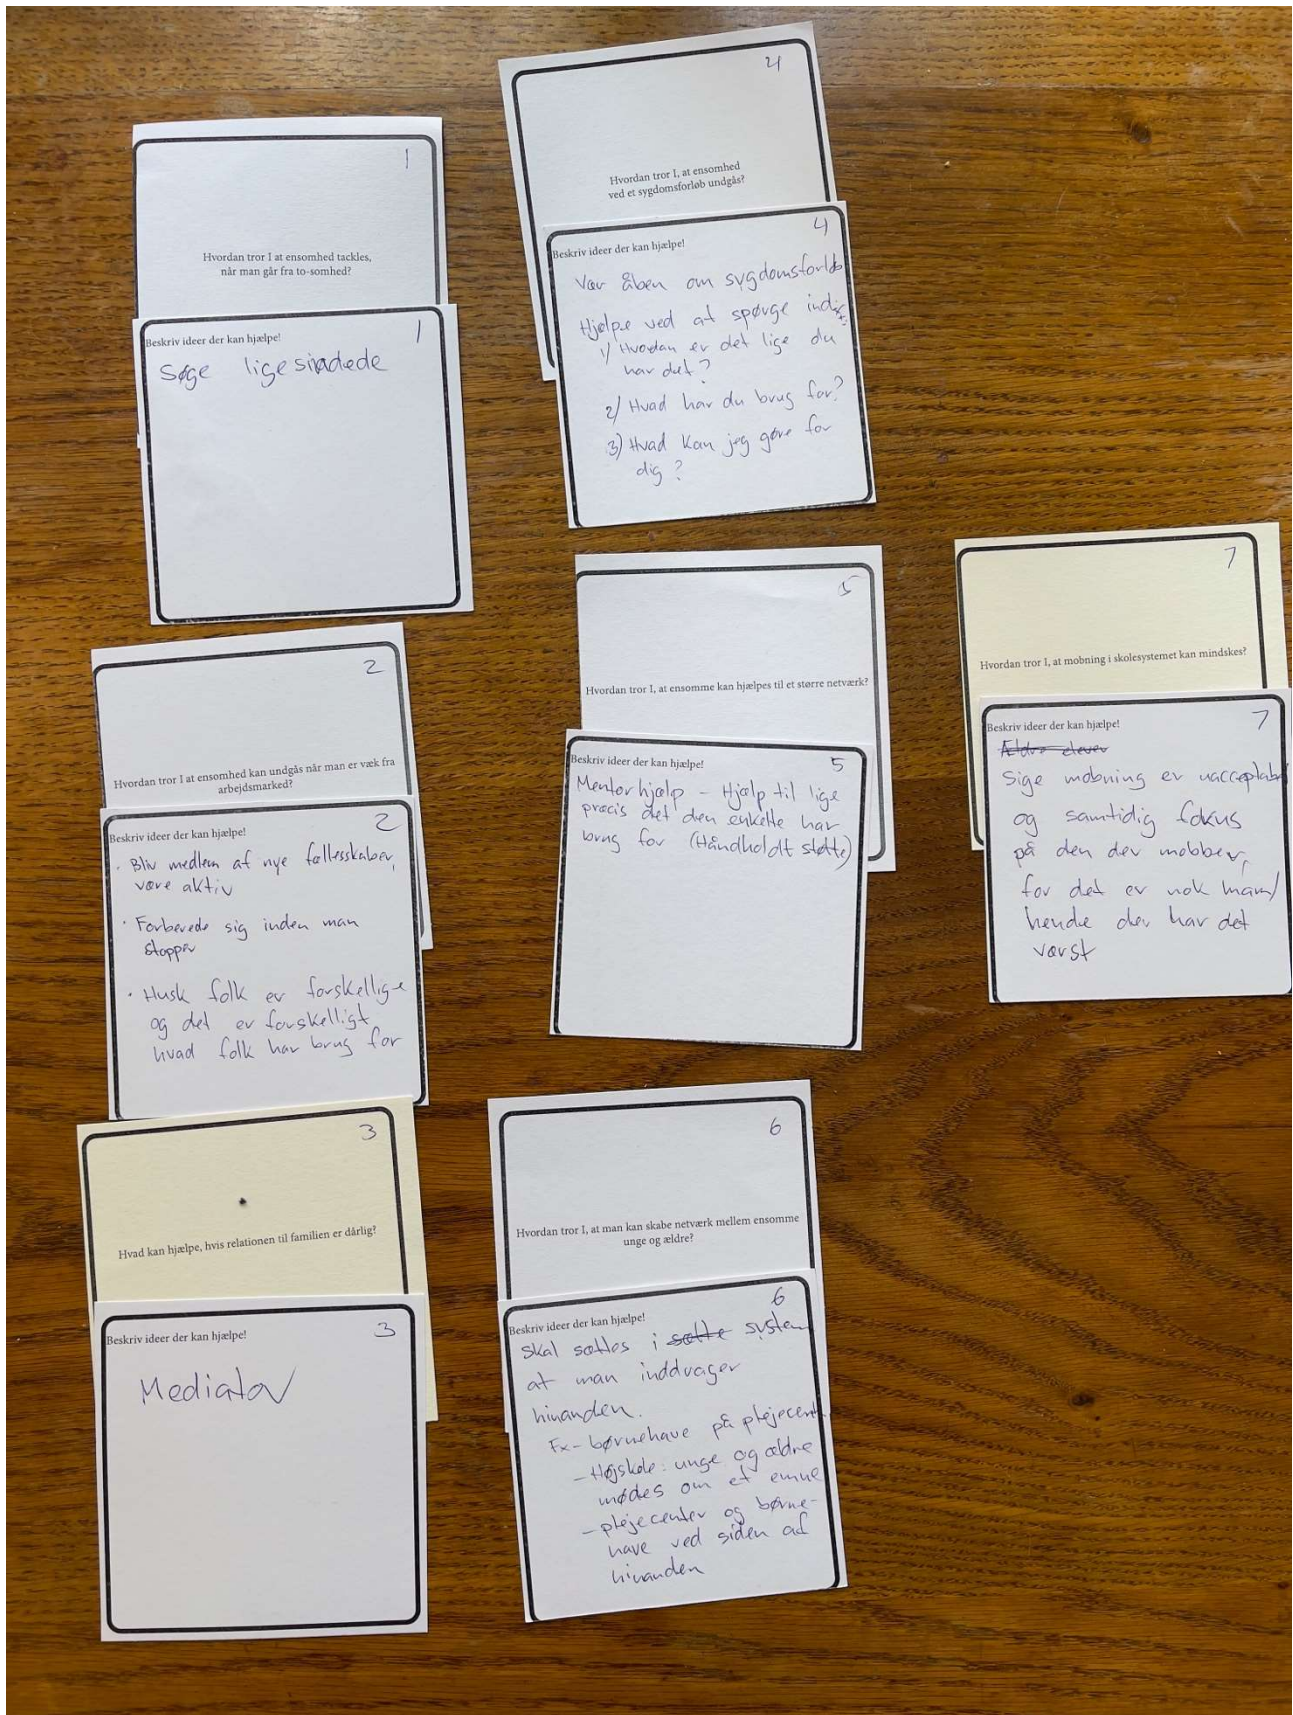 1
Hvordan tror I at ensomhed tackles,
når man går fra to-somhed?
1
Beskriv ideer der kan hjælpe!
Søge ligesindede
2
Hvordan tror I at ensomhed kan undgås når man er væk fra
arbejdsmarked?
2
Beskriv ideer der kan hjælpe!
· Bliv medlem af nye fællesskaber,
være aktiv
· Forberede sig inden man
stopper
· Husk folk er forskellige
og det er forskelligt
hvad folk har brug for
3
Hvad kan hjælpe, hvis relationen til familien er dårlig?
3
Beskriv ideer der kan hjælpe!
Mediator
4
Hvordan tror I, at ensomhed
ved et sygdomsforløb undgås?
4
Beskriv ideer der kan hjælpe!
Vær åben om sygdomsforløb
Hjælpe ved at spørge
1) Hvordan er det lige du
har det?
2) Hvad har du brug for?
3) Hvad kan jeg gøre for
dig?
5
Hvordan tror I, at ensomme kan hjælpes til et større netværk?
5
Beskriv ideer der kan hjælpe!
Mentorhjælp - Hjælp til lige
præcis det den enkelte har
brug for (Håndholdt støtte)
6
Hvordan tror I, at man kan skabe netværk mellem ensomme
unge og ældre?
6
Beskriv ideer der kan hjælpe!
Skal sættes i sætte system
at man inddrager
hinanden.
Fx - børnehave på plejecent
- Højskole: unge og ældre
mødes om et emne
- plejecenter og børne-
have ved siden af
hinanden
7
Hvordan tror I, at mobning i skolesystemet kan mindskes?
7
Beskriv ideer der kan hjælpe!
Ældre elever
Sige mobning er uacceptabel
og samtidig fokus
på den der mobber,
for det er nok ham/
hende der har det
værst